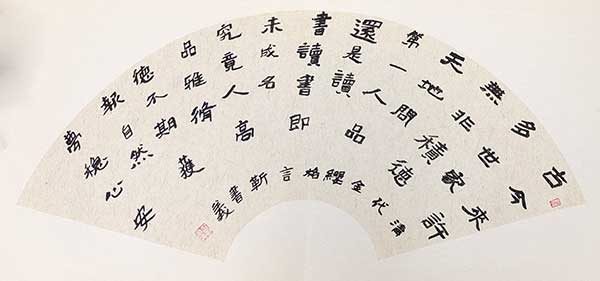 古今來許
多世家
無非積德
天地間
第一人品
還是讀
書讀書即
未成名
究竟人高
品雅脩
德不期獲
報自然
夢穩心安
清代金纓格言靳書義